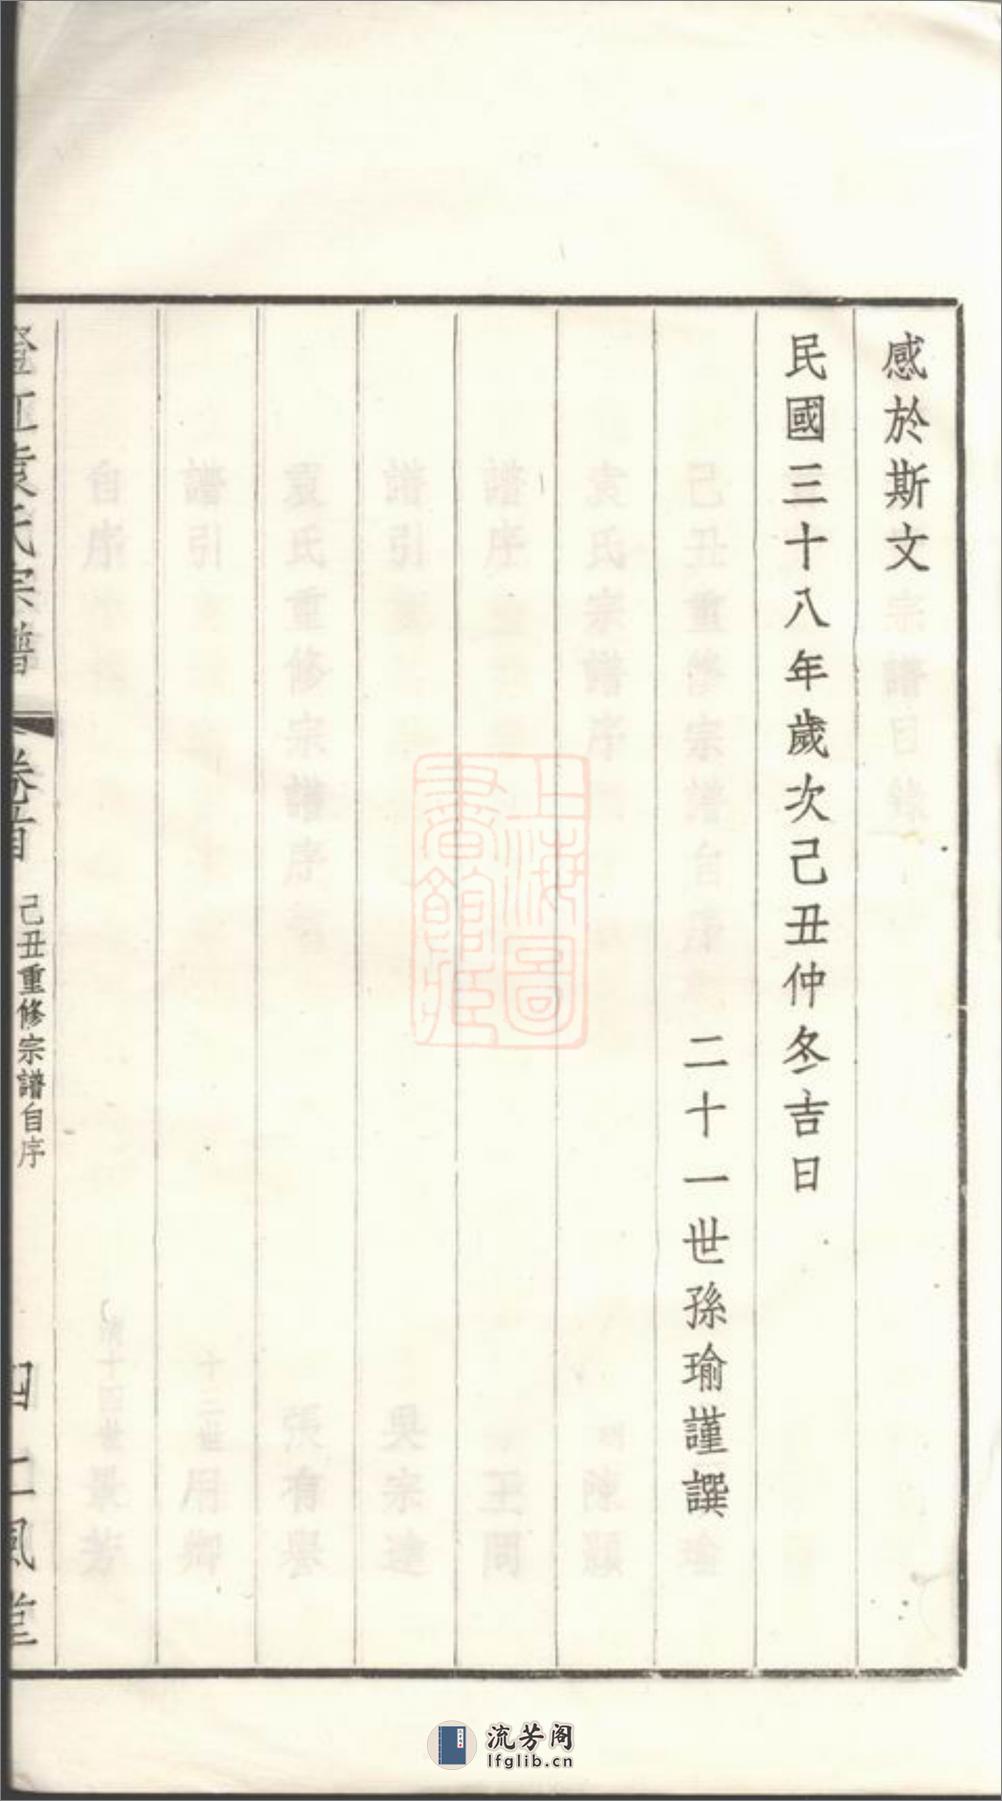 感於斯文
民國三十八年歲次己丑仲冬吉日
二十一世孫瑜謹譔
澄江袁氏宗譜
卷首
己丑重修宗譜自序
四
仁風堂
上海圖書館藏
流芳阁
lfglib.cn